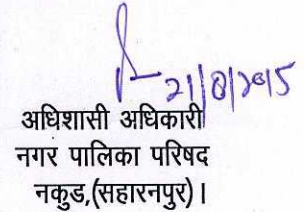 21/8/2015
अधिशासी अधिकारी
नगर पालिका परिषद
नकुड,(सहारनपुर)।